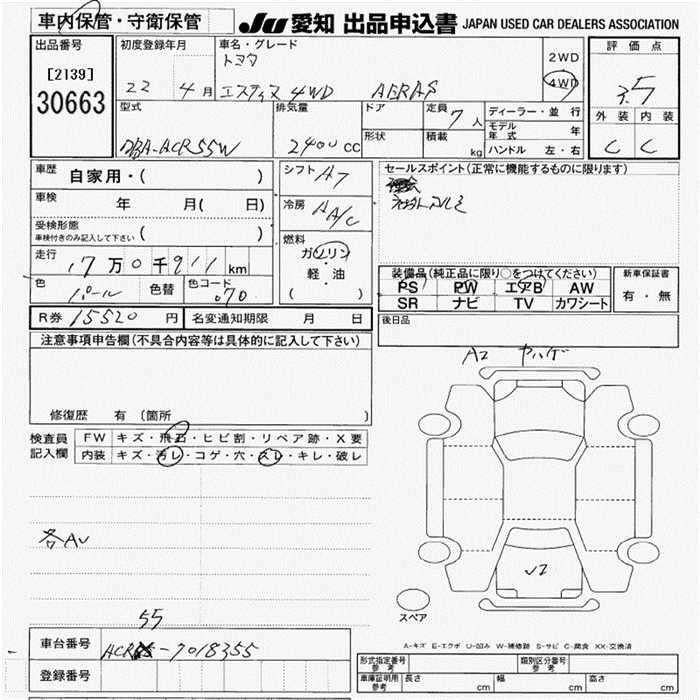 車内保管・守衛保管
JU 愛知 出品申込書 JAPAN USED CAR DEALERS ASSOCIATION
出品番号
[2139]
30663
初度登録年月
22 4 月
車名・グレード
トヨタ
エスティマ 4WD AERAS
2WD
4WD
評価点
3.5
外装 内装
C C
型式
DBA-ACR55W
排気量
2400 CC
ドア
形状
定員
7 人
積載
kg
ディーラー・並行
モデル年式 年
ハンドル 左・右
車歴
自家用・( )
車検
年 月( 日)
受検形態
車検付きのみ記入して下さい ( )
走行
17 万 0 千 911 km
色
パール
色替
色コード
070
シフト AT
冷房 AA/C
燃料
ガソリン
軽・油
( )
セールスポイント(正常に機能するものに限ります)
装備品(純正品に限り○をつけてください)
PS PW エアB AW
SR ナビ TV カワシート
新車保証書
有・無
R券 15520 円
名変通知期限 月 日
後日品
注意事項申告欄(不具合内容等は具体的に記入して下さい)
修復歴 有 (箇所 )
検査員
記入欄
FW キズ・飛石・ヒビ割・リペア跡・X要
内装 キズ・汚レ・コゲ・穴・スレ・キレ・破レ
A2
各AU
スペア
A-キズ E-エクボ U-凹み W-補修跡 S-サビ C-腐食 XX-交換済
車台番号
55
ACR -7018355
登録番号
形式指定番号 参考
類別区分番号 参考
車庫証明用 参考
長さ cm
幅 cm
高さ cm